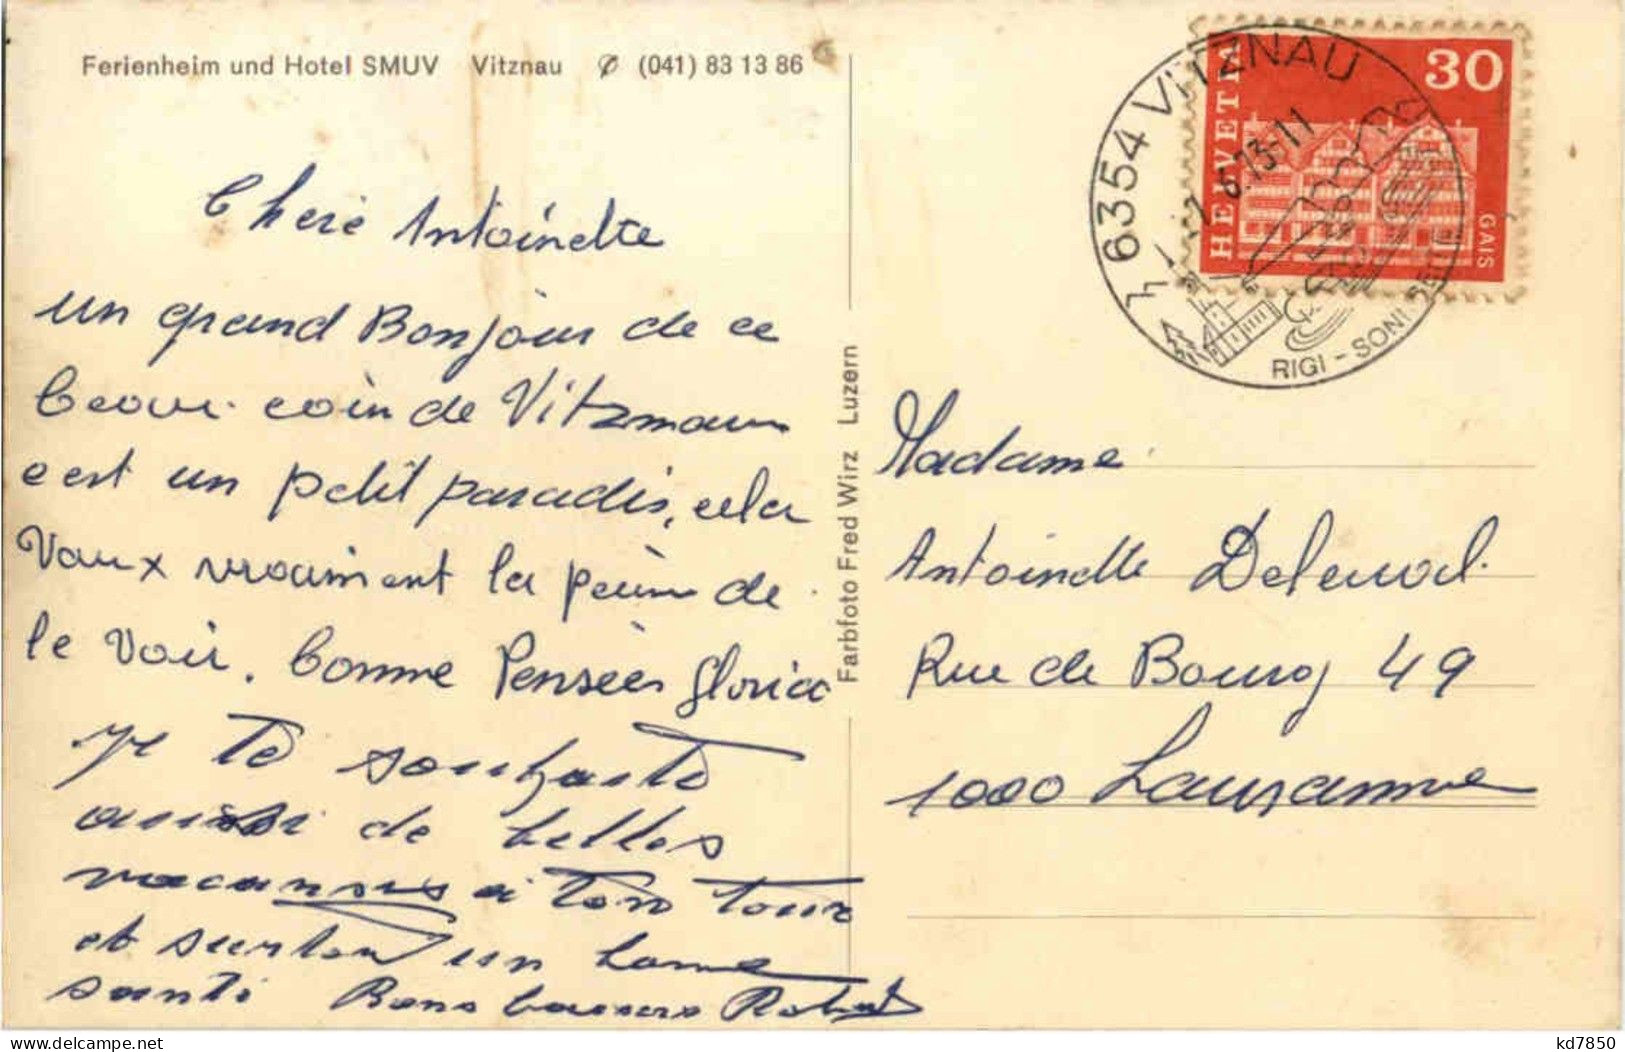 Ferienheim und Hotel SMUV Vitznau (041) 83 13 86
Chère Antoinette
un grand Bonjour de ce
beau coin de Vitznau
c'est un petit paradis, cela
Vaux vraiment la peine de
le voir. bonne Pensées Gloria
je te souhaite
aussi de belles
vacances à ton tour
et surtou un bonne
santé Bons baisers Robert
Farbfoto Fred Wirz Luzern
HELVETIA
30
GAIS
6354 VITZNAU
6.73-11
RIGI - SONNSEITE
Madame
Antoinette
Rue de Bourg 49
1000 Lausanne
kd7850